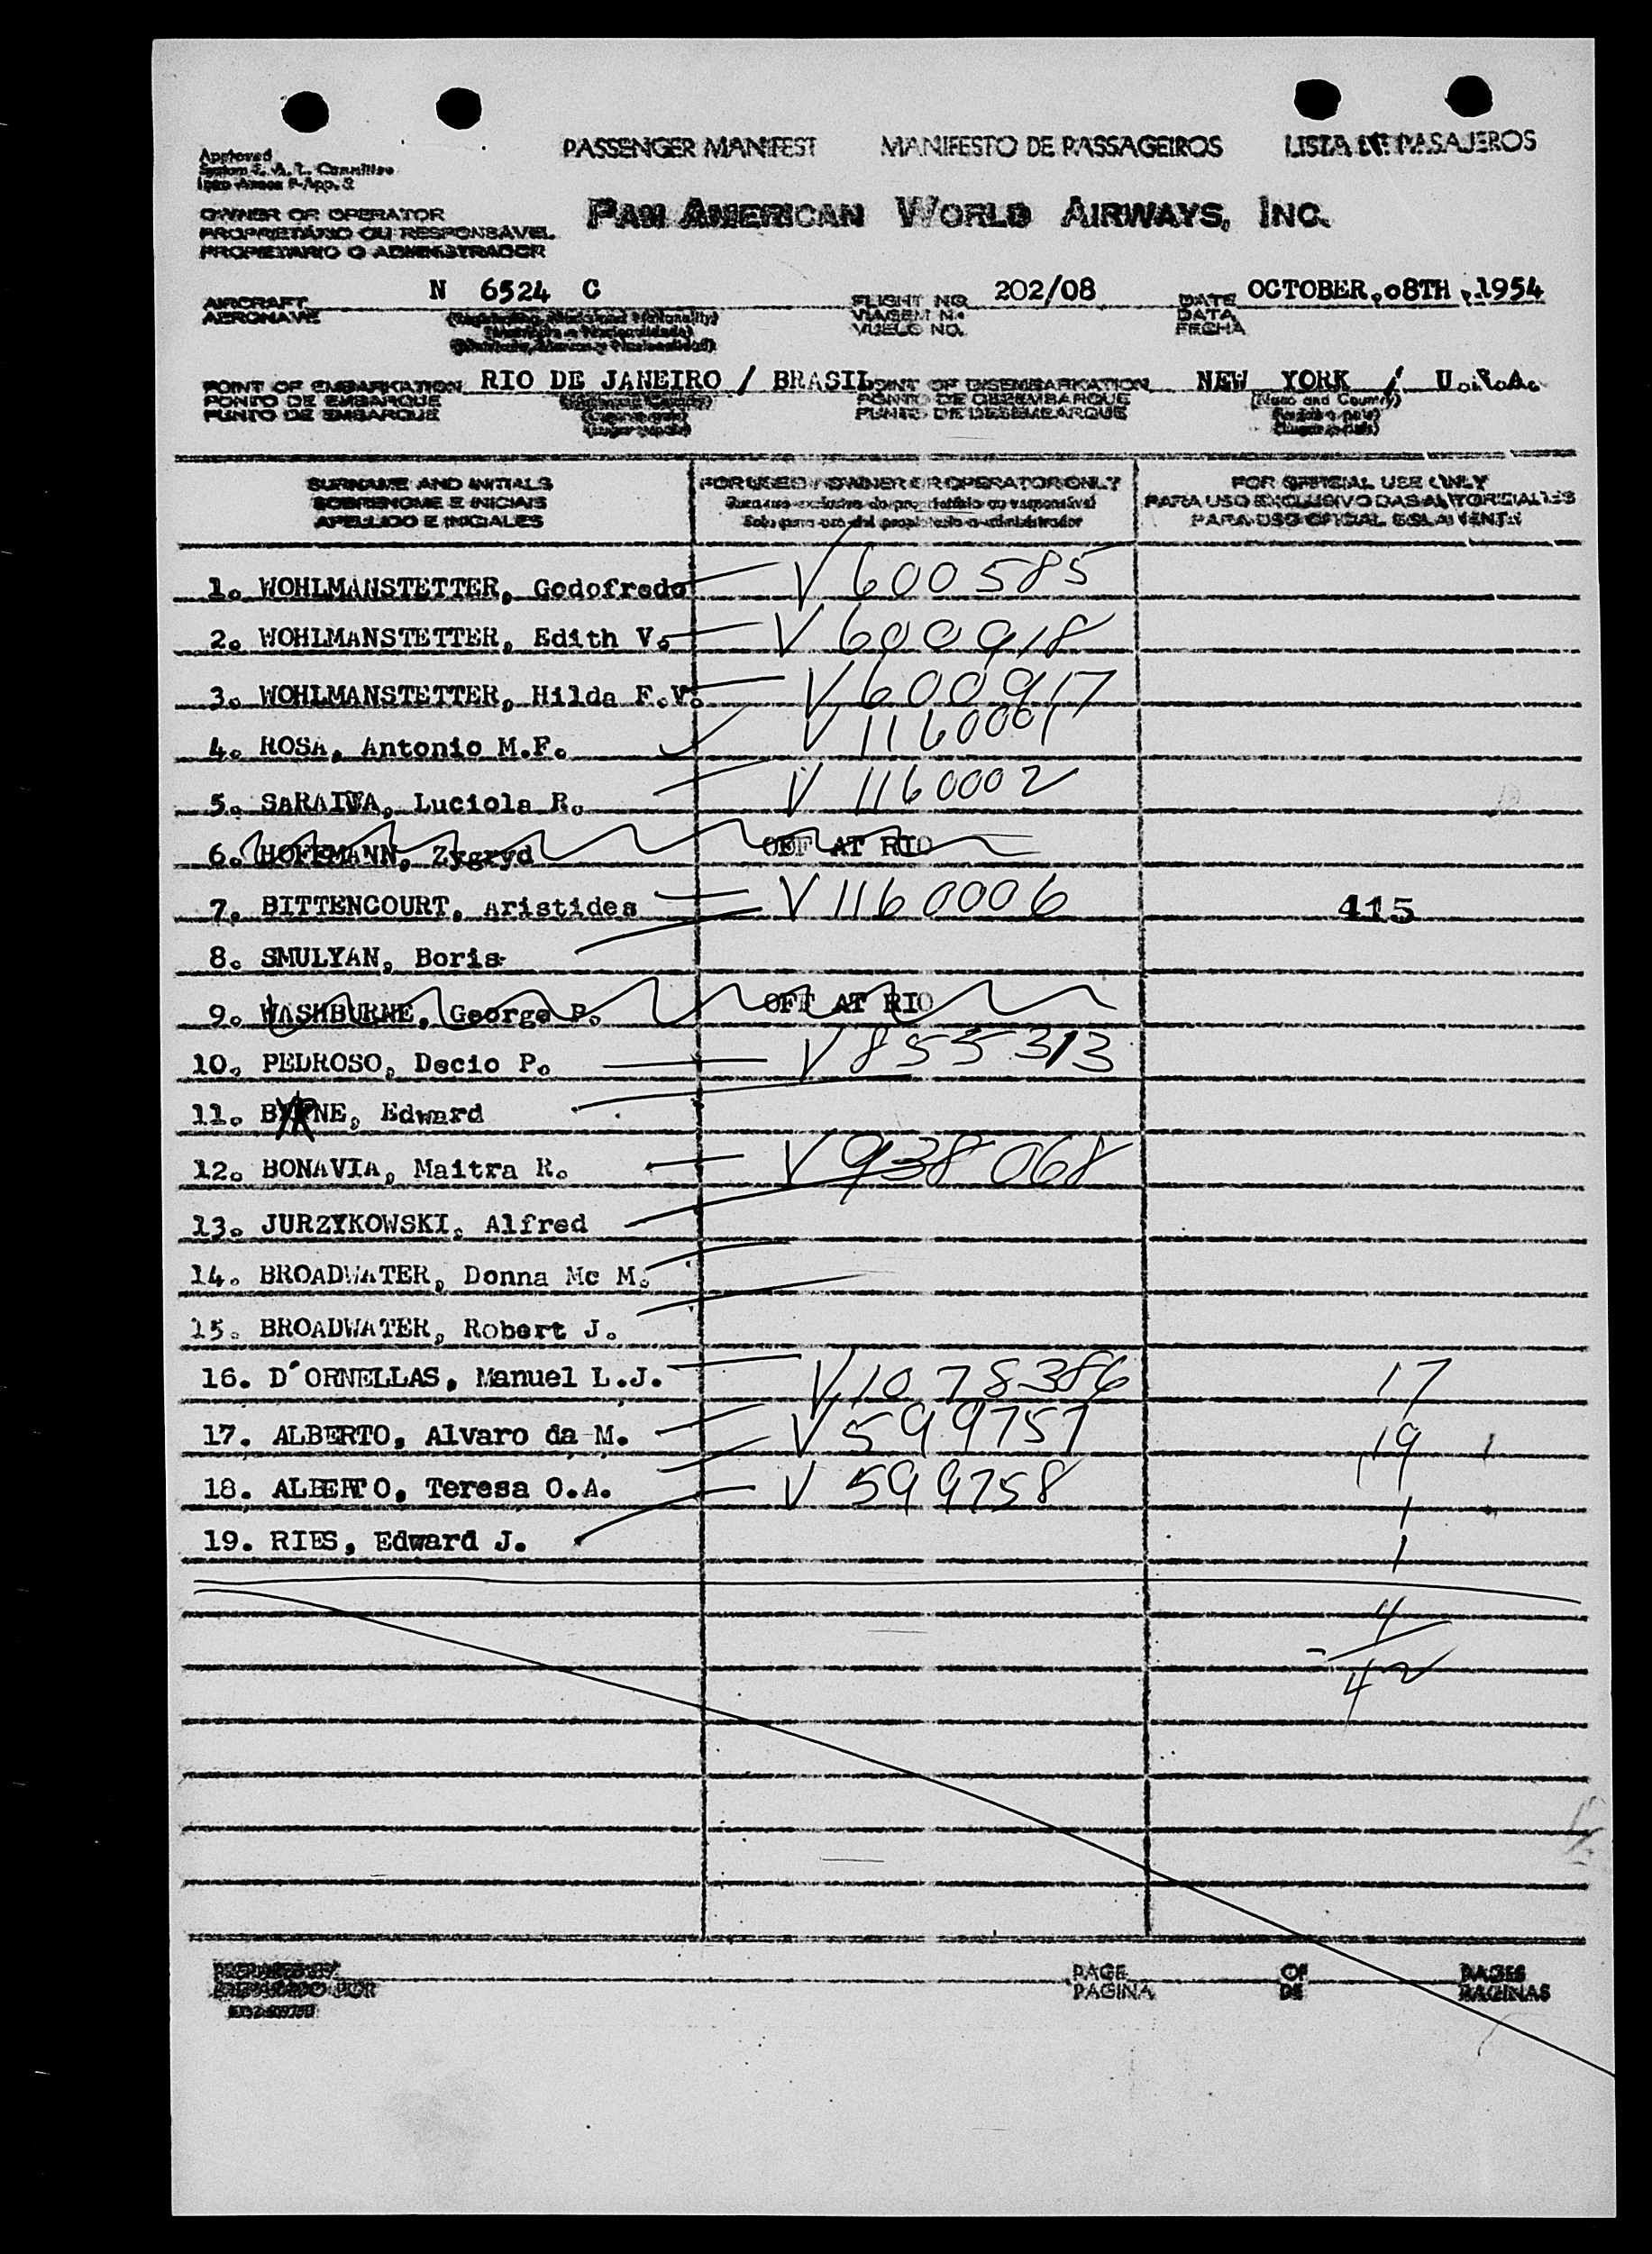 PASSENGER MANIFEST MANIFESTO DE PASSAGEIROS LISTA DE PASAJEROS
Approved
OWNER OR OPERATOR PAN AMERICAN WORLD AIRWAYS, INC.
PROPRIETARIO OU RESPONSAVEL
PROPIETARIO O ADMINISTRADOR
AIRCRAFT N 6524 C FLIGHT NO. 202/08 DATE OCTOBER,08TH,1954
AERONAVE VIAGEM N. DATA
VUELO NO. FECHA
POINT OF EMBARKATION RIO DE JANEIRO / BRASIL POINT OF DISEMBARKATION NEW YORK / U.S.A.
PONTO DE EMBARQUE PONTO DE DESEMBARQUE (Place and Country)
PUNTO DE EMBARQUE PUNTO DE DESEMBARQUE
SURNAME AND INITIALS FOR USE BY OWNER OR OPERATOR ONLY FOR OFFICIAL USE ONLY
SOBRENOME E INICIAIS Para uso exclusivo do proprietário ou responsável PARA USO EXCLUSIVO DAS AUTORIDADES
APELLIDO E INICIALES Solo para uso del propietario o administrador PARA USO OFICIAL SOLAMENTE
1. WOHLMANSTETTER, Godofredo V 600585
2. WOHLMANSTETTER, Edith V. V 600918
3. WOHLMANSTETTER, Hilda F.V. V 600917
4. ROSA, Antonio M.F. V 1160001
5. SaRAIVA, Luciola R. V 1160002
6. HOFFMANN, Zygryd OFF AT RIO
7. BITTENCOURT, Aristides V 1160006 415
8. SMULYAN, Boris
9. WASHBURNE, George P. OFF AT RIO
10. PEDROSO, Decio P. V 855313
11. BYRNE, Edward
12. BONAVIA, Maitra R. V 938068
13. JURZYKOWSKI, Alfred
14. BROADWATER, Donna Mc M.
15. BROADWATER, Robert J.
16. D'ORNELLAS, Manuel L.J. V 1078386 17
17. ALBERTO, Alvaro da M. V 599757 19 1
18. ALBERTO, Teresa O.A. V 599758 1
19. RIES, Edward J. 1
4
42
PAGE OF PAGES
PREPARADO POR PAGINA DE PAGINAS